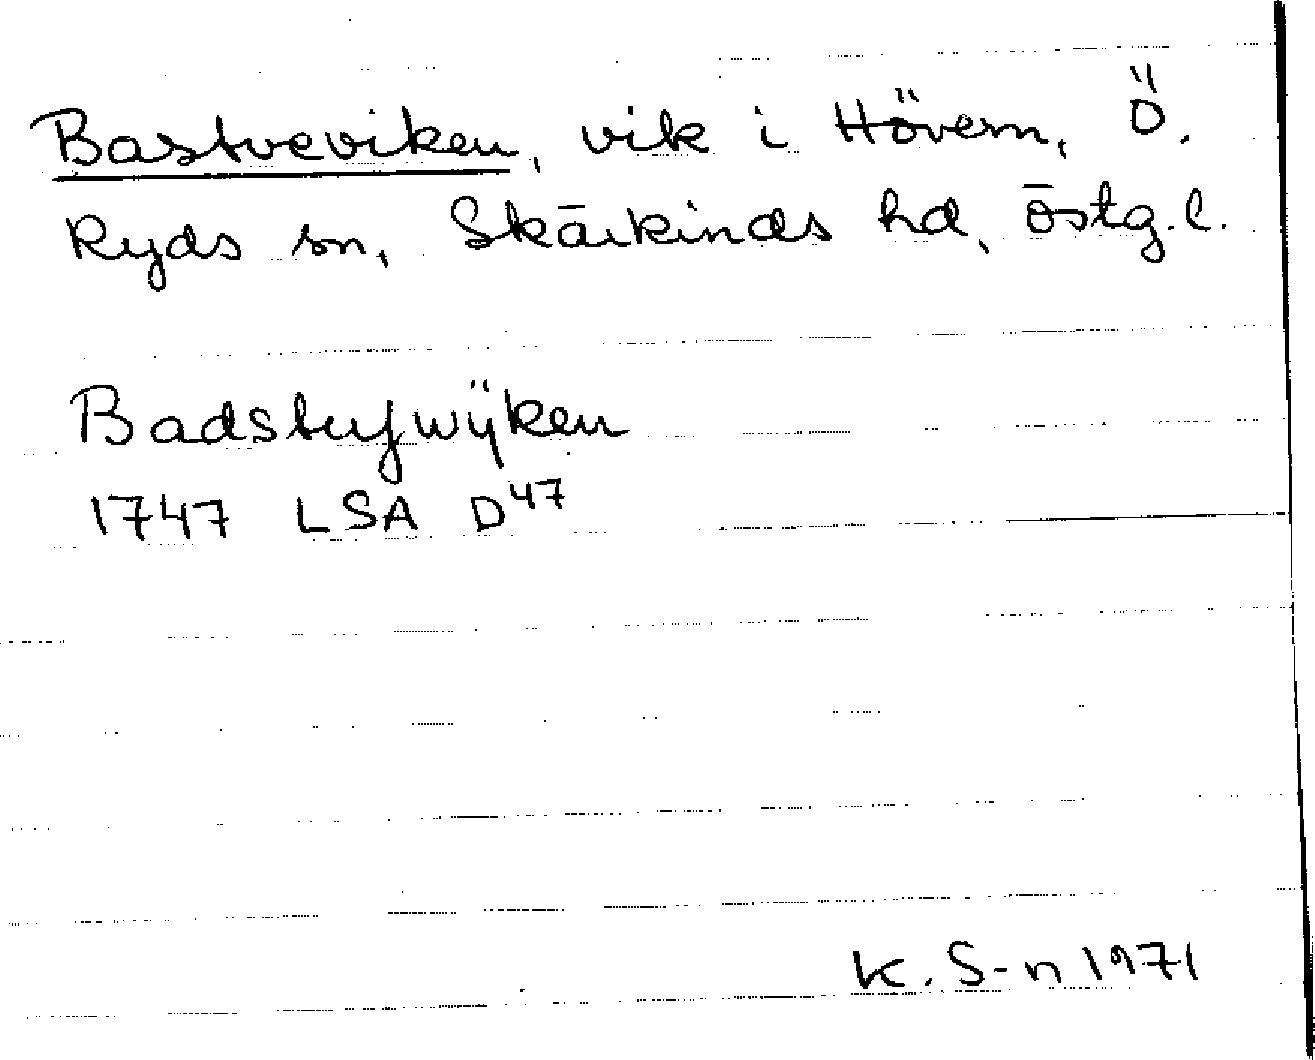 Bastveviken, vik i Hövern, Ö.
Ryds sn, Skärkinds hd, Östg.l.
Badstufwÿken
1747 LSA D47
K. S-n 1971